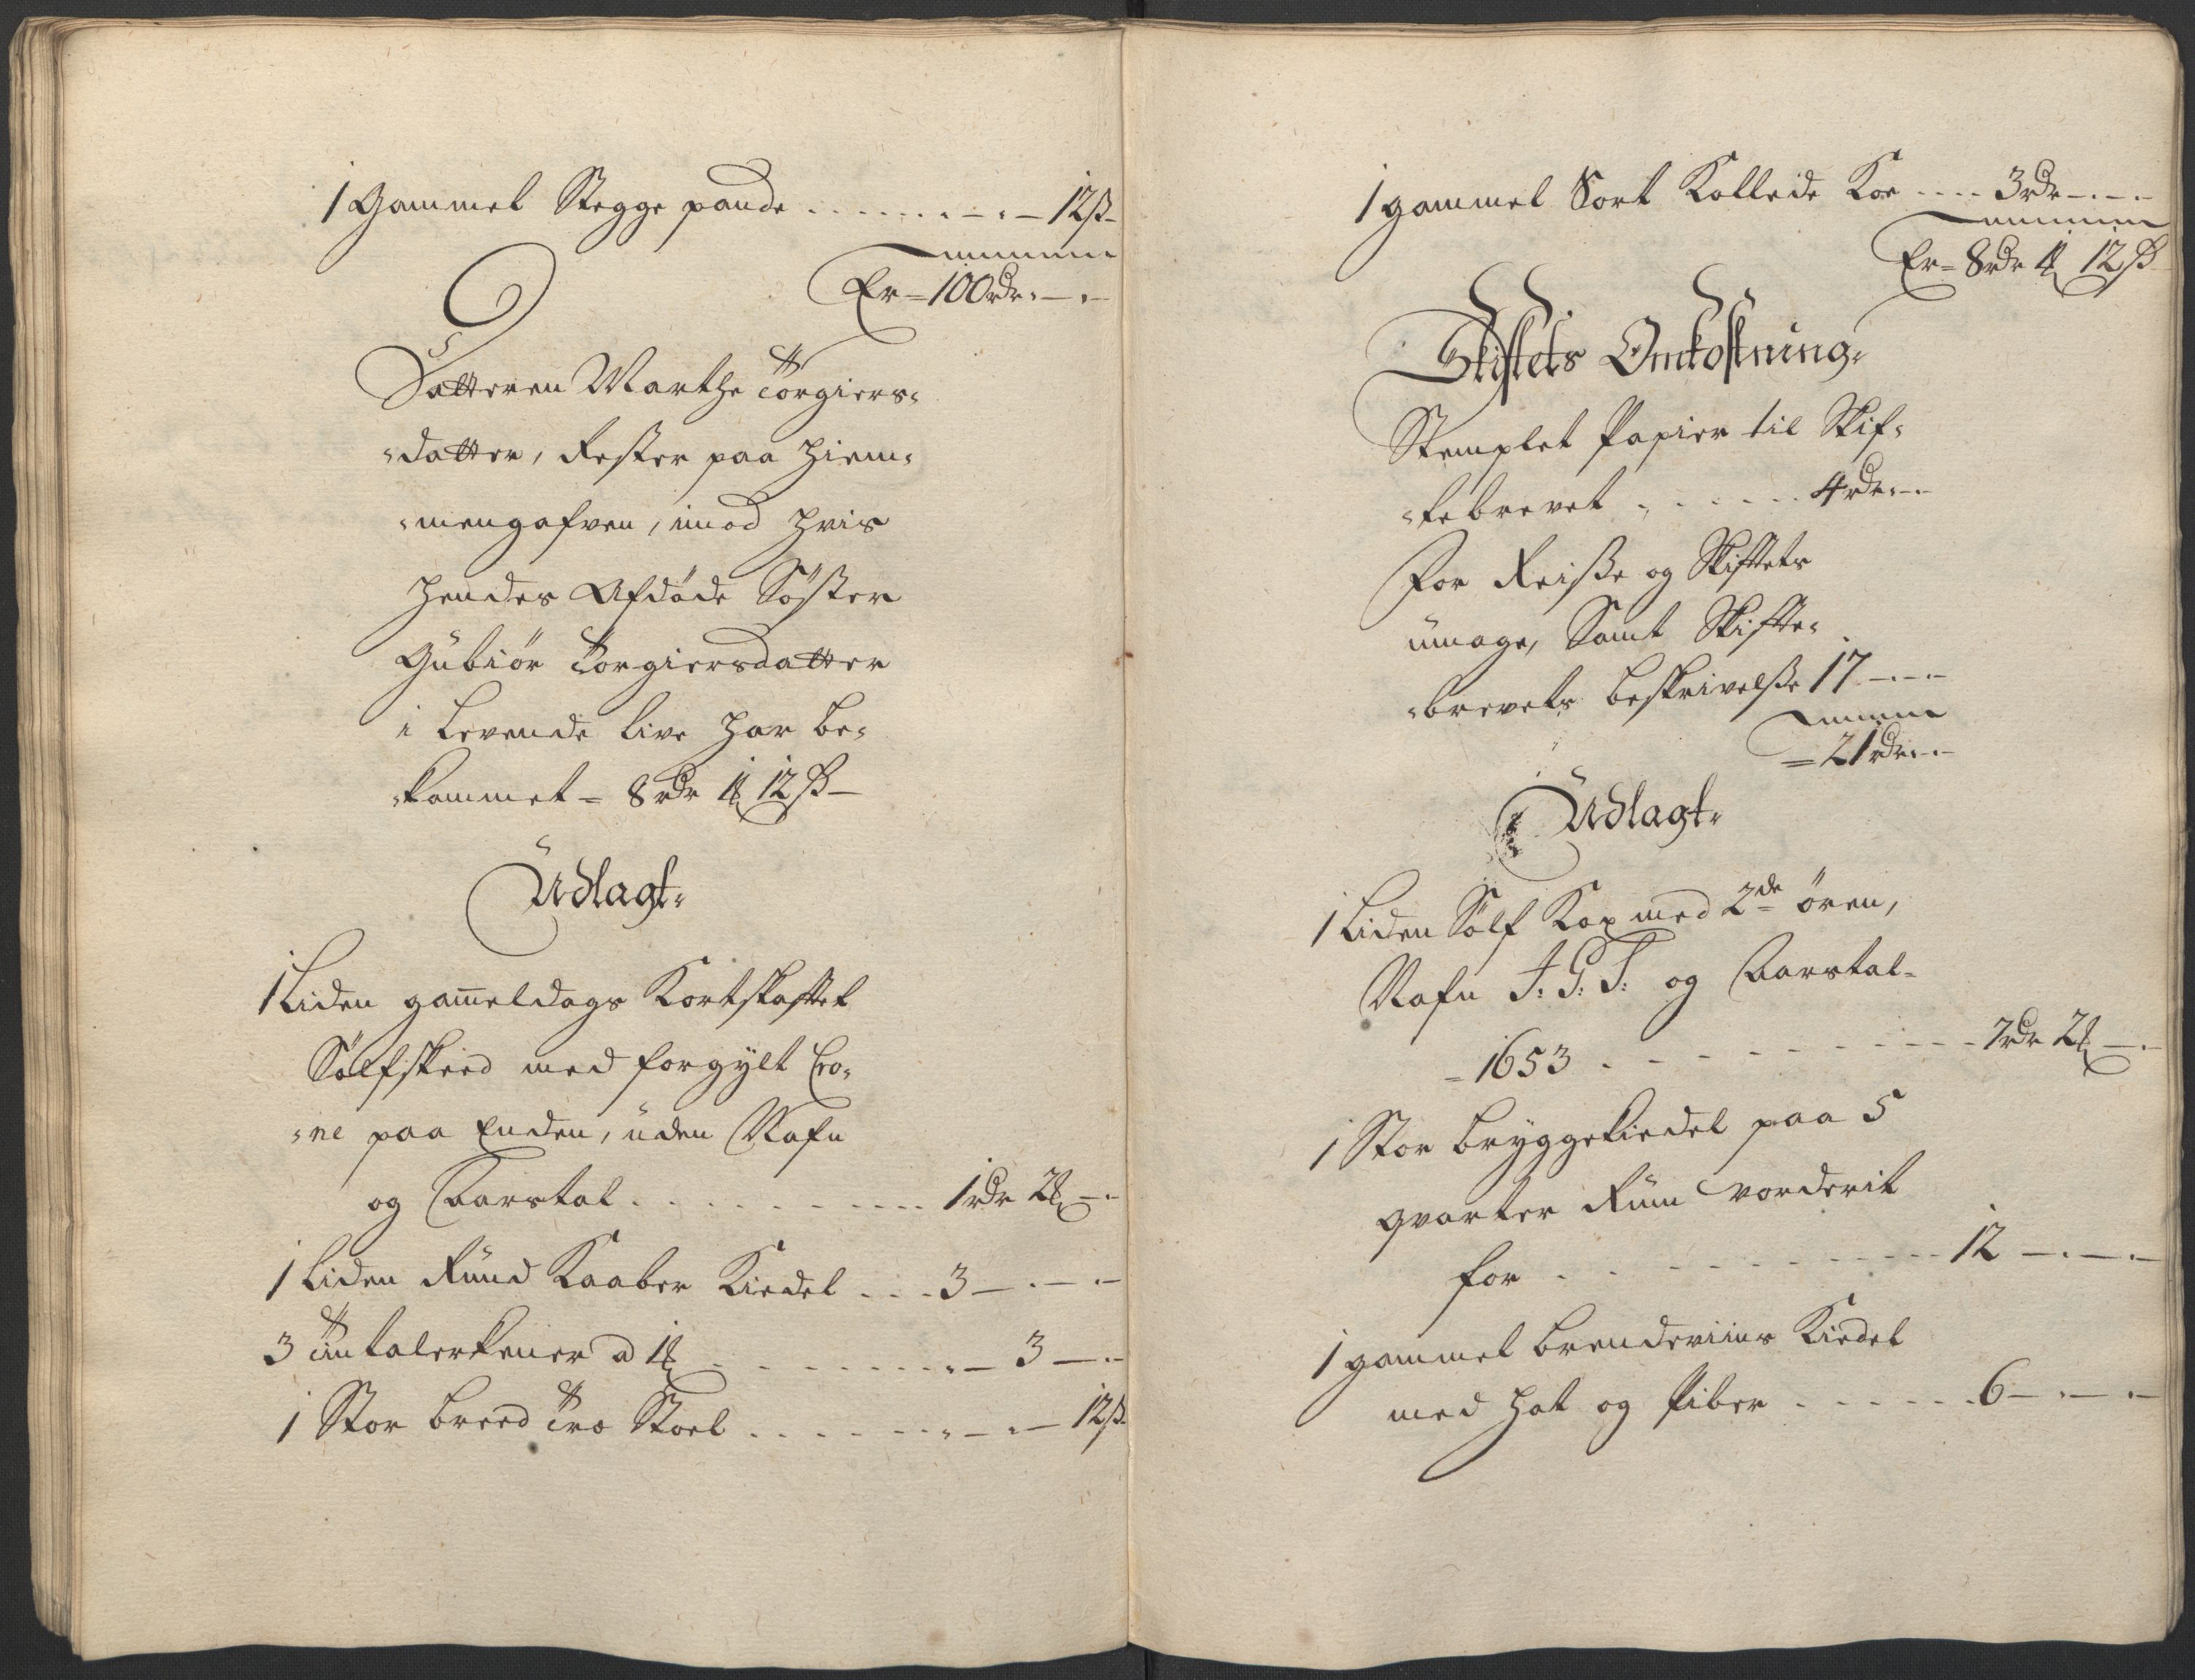 1 Gammel Stegge pande . . . . . . . – . – 12 ß –
Er = 100 rdr. – . –
Datteren Marthe Torgiers=
=datter, Rester paa hiem=
=mengafven, imod hvis
hendes Afdøde Søster
Gubiør Torgiersdatter
i Levende live har be=
=kommet = 8 rdr 1 ℔ 12 ß –
Udlagt=
1 Liden gam̄eldags Kortskaftet
Sølfskeed med forgylt Cro=
=ne paa Enden, uden Nafn
og Aarstal . . . . . . . . 1 rdr 2 ℔ – .
1 Liden Rund Kaaber Kiedel . . . 3 – . – . –
3 Tintalerkener a 1 ℔ . . . . . . . . – 3 – . –
1 Stor breed Træ Stoel . . . . . . . – . – 12 ß
1 gammel Sort Kollede Koe . . . . 3 rdr – . – . –
Er = 8 rdr 1 ℔ 12 ß
Skiftets Omkostning=
Stemplet Papier til Skif=
=tebrevet . . . . . . 4 rdr. – . –
For Reise og Skiftets
umage, Samt Skifte=
=brevets beskrivelße 17 – . – . –
= 21 rdr. – . –
Udlagt=
1 Liden Sølf Kop med 2de ører,
Nafn J: G: S: og Aarstal =
= 1653 . . . . . . . . . . 7 rdr 2 ℔ – . –
1 Stor bryggekiedel paa 5
qvarter Rum vorderit
for . . . . . . . . . . 12 – . – . –
1 gammel brendeviins Kiedel
med hat og Piber . . . . . . . 6 – . – . –